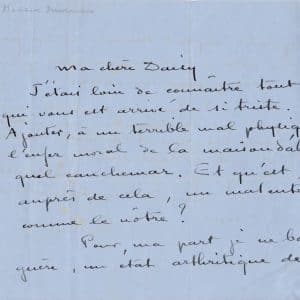 Ma chère Daisy
J'étais loin de connaître tout
qui vous est arrivé de si triste.
Ajouter, à un terrible mal physiq
l'enfer moral de la maison da
quel cauchemar. Et qu'est
auprès de cela, un malente
comme le nôtre?
Pour, ma part je ne bo
guère, un état arthritique de